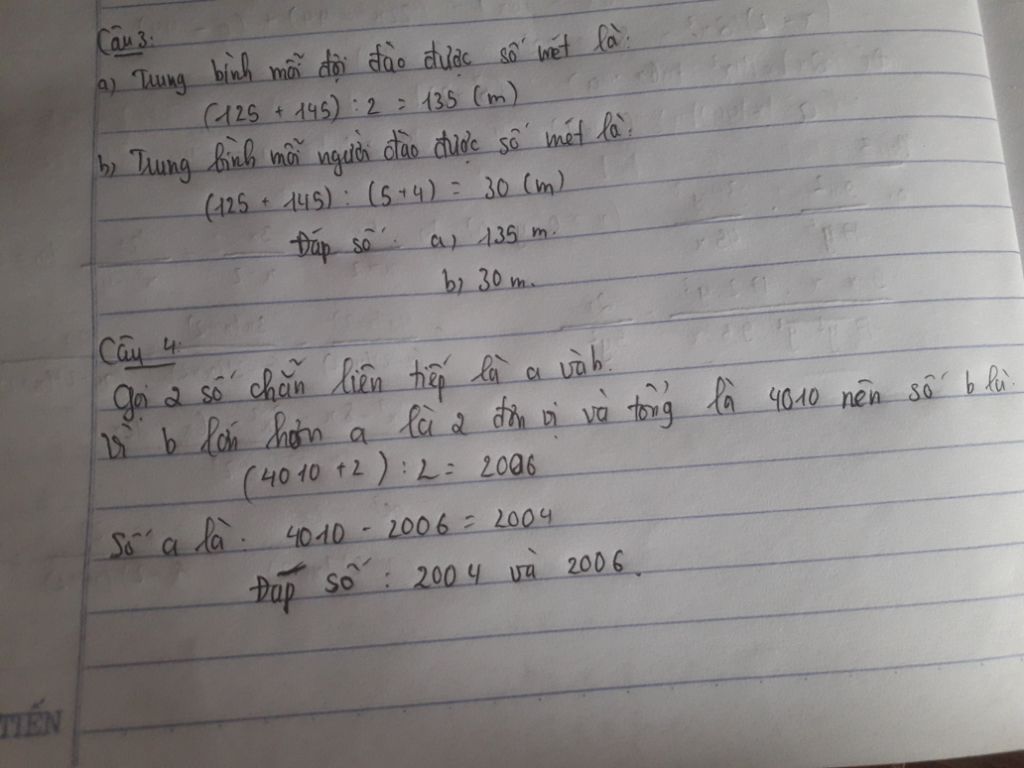 Câu 3:
a) Trung bình mỗi đội đào được số mét là:
(125 + 145) : 2 = 135 (m)
b) Trung bình mỗi người đào được số mét là:
(125 + 145) : (5+4) = 30 (m)
Đáp số: a) 135 m.
b) 30 m.
Câu 4:
Gọi 2 số chẵn liên tiếp là a và b.
Vì b lớn hơn a là 2 đơn vị và tổng là 4010 nên số b là:
(4010 + 2) : 2 = 2006
Số a là: 4010 - 2006 = 2004
Đáp số: 2004 và 2006.
TIẾN